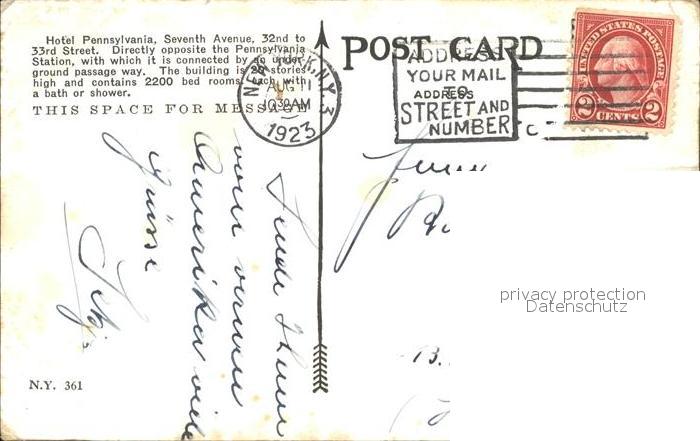 Hotel Pennsylvania, Seventh Avenue, 32nd to
33rd Street. Directly opposite the Pennsylvania
Station, with which it is connected by an under-
ground passage way. The building is stories
high and contains 2200 bed rooms, each with
a bath or shower.
THIS SPACE FOR MESSAGE
POST CARD
NEW YORK, N.Y. 3
AUG 11
10 30 AM
1923
ADDRESS
YOUR MAIL
TO
STREET AND
NUMBER
ADDRESS
UNITED STATES POSTAGE
2 CENTS 2
Sende Ihnen
vom
Amerika viele
Grüsse
B.
privacy protection
Datenschutz
N.Y. 361